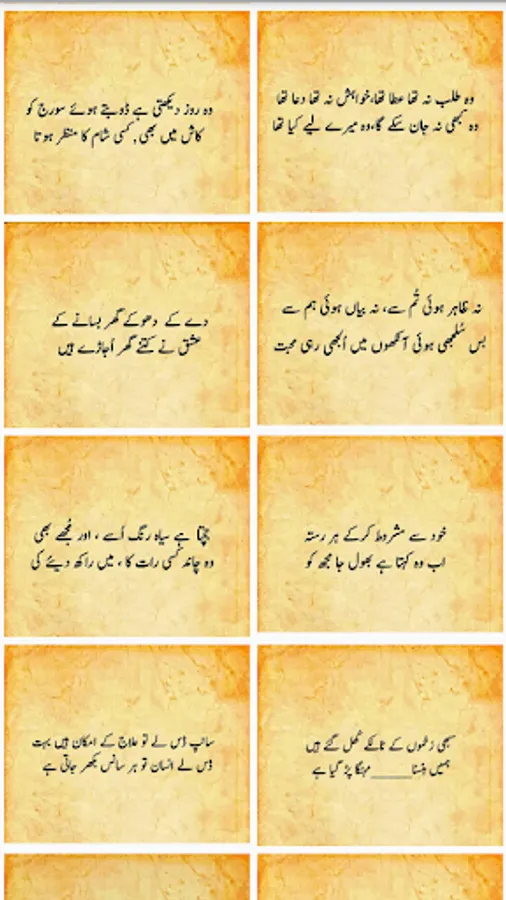 وہ روز دیکھتی ہے ڈوبتے ہوئے سورج کو
کاش میں بھی, کسی شام کا منظر ہوتا
وہ طلب نہ تھا عطا تھا،خواہش نہ تھا دعا تھا
وہ کبھی نہ جان سکے گا،وہ میرے لیے کیا تھا
دے کے دھوکے گھر بسانے کے
عشق نے کتنے گھر اُجاڑے ہیں
نہ ظاہر ہوئی تُم سے، نہ بیاں ہوئی ہم سے
بس سُلجھی ہوئی آنکھوں میں اُلجھی رہی محبت
جچتا ہے سیاہ رنگ اُسے ، اور مُجھے بھی
وہ چاند کسی رات کا ، میں راکھ دیئے کی
خود سے مشروط کرکے ہر رستہ
اب وہ کہتا ہے بھول جا مجھ کو
سانپ ڈس لے تو علاج کے امکان ہیں بہت
ڈس لے انسان تو ہر سانس بکھر جاتی ہے
سبھی زخموں کے ٹانکے کُھل گئے ہیں
ہمیں ہنسنا______مہنگا پڑ گیا ہے